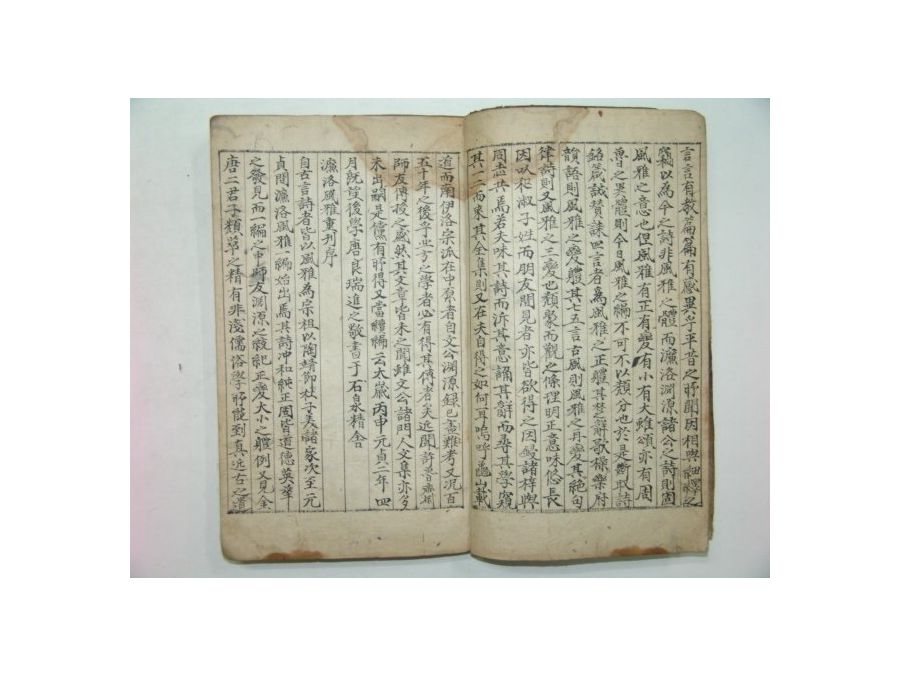 言言有教篇篇有感異哉平昔之所聞因相與細繹之
竊以為今之詩非風雅之體而濂洛淵源諸公之詩則固
風雅之意也但風雅有正有變有小有大雖頌亦有周
魯之異體則今日風雅之編不可不以類分也於是斷取詩
銘箴誡贊誄四言者為風雅之正體其楚辭歌操樂府
韻語則風雅之變體其七五言古風則風雅之再變其絕句
律詩則又風雅之三變也類聚而觀之條理明正意味悠長
因以授淑子姓而朋友聞見者亦皆欲得之因鋟諸梓與
同志共焉若夫味其詩而泝其意誦其辭而尋其學窺
其一二而求其全集則又在夫自得之如何耳嗚呼龜山載
道而南伊洛宗派在中原者自文公淵源錄已患難考又況百
五十年之後乎北方之學者必有得其傳者矣近聞許魯齋
師友傳授之盛然其文章皆未之聞雖文公諸門人文集亦多
未出嗣是儻有所得又當續編云太歲丙申元貞二年四
月既望後學唐良瑞進之敬書于石泉精舍
濂洛風雅重刊序
自古言詩者皆以風雅為宗祖以陶靖節杜子美諸家次至元
貞間濂洛風雅一編始出焉其詩冲和純正周皆道德英華
之發見而一編之中師友淵源之統紀正變大小之體例又見金
唐二君子類萃之精有非淺儒俗學所能到真近古之遺